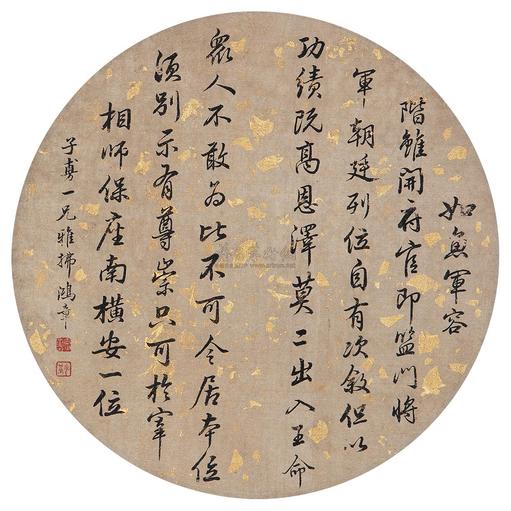 如魚軍容
階雖開府官即監門將
軍朝廷列位自有次敘但以
功績既高恩澤莫二出入王命
眾人不敢為比不可令居本位
須別示有尊崇只可於宰
相師保座南橫安一位
子 一兄雅拂 鴻章